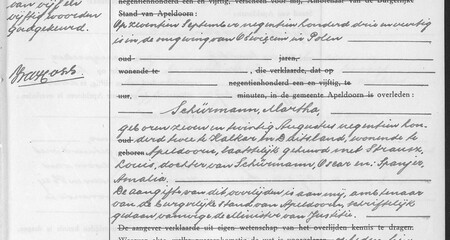 van vijf en
vijftig woorden
goedgekeurd.
negentienhonderd een en vijftig, verscheen voor mij, Ambtenaar van de Burgerlijke
Stand van Apeldoorn:
Op zeventien September negentien honderd drie en veertig
is in de omgeving van Oswiecim in Polen
oud jaren,
wonende te , die verklaarde, dat op
negentienhonderd een en vijftig, te
uur, minuten, in de gemeente Apeldoorn is overleden:
Schürmann, Martha,
geboren zeven en twintig Augustus negentien hon-
oud derd twee te Kalkar in Duitsland, wonende te
geboren Apeldoorn, laatstelijk gehuwd met Strausz,
Louis, dochter van Schürmann, Oscar en: Spanjer,
Amalia.
De aangifte van dit overlijden is aan mij, ambtenaar
van de burgerlijke Stand van Apeldoorn, schriftelijk
gedaan, vanwege de Minister van Justitie.
De aangever verklaarde uit eigen wetenschap van het overlijden kennis te dragen.
Waarvan akte, welke overeenkomstig de wet is voorgelezen